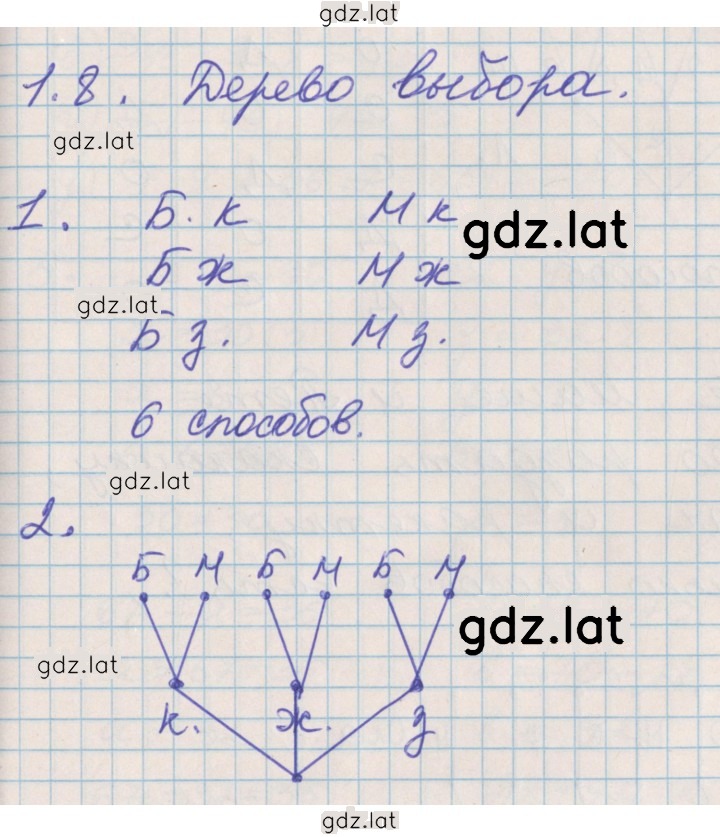 gdz.lat
1.8. Дерево выбора.
gdz.lat
1. Б. к М к
gdz.lat
Б ж М ж
gdz.lat
Б з. М з.
6 способов.
gdz.lat
2.
Б М Б М Б М
gdz.lat
gdz.lat
к. ж. з
gdz.lat